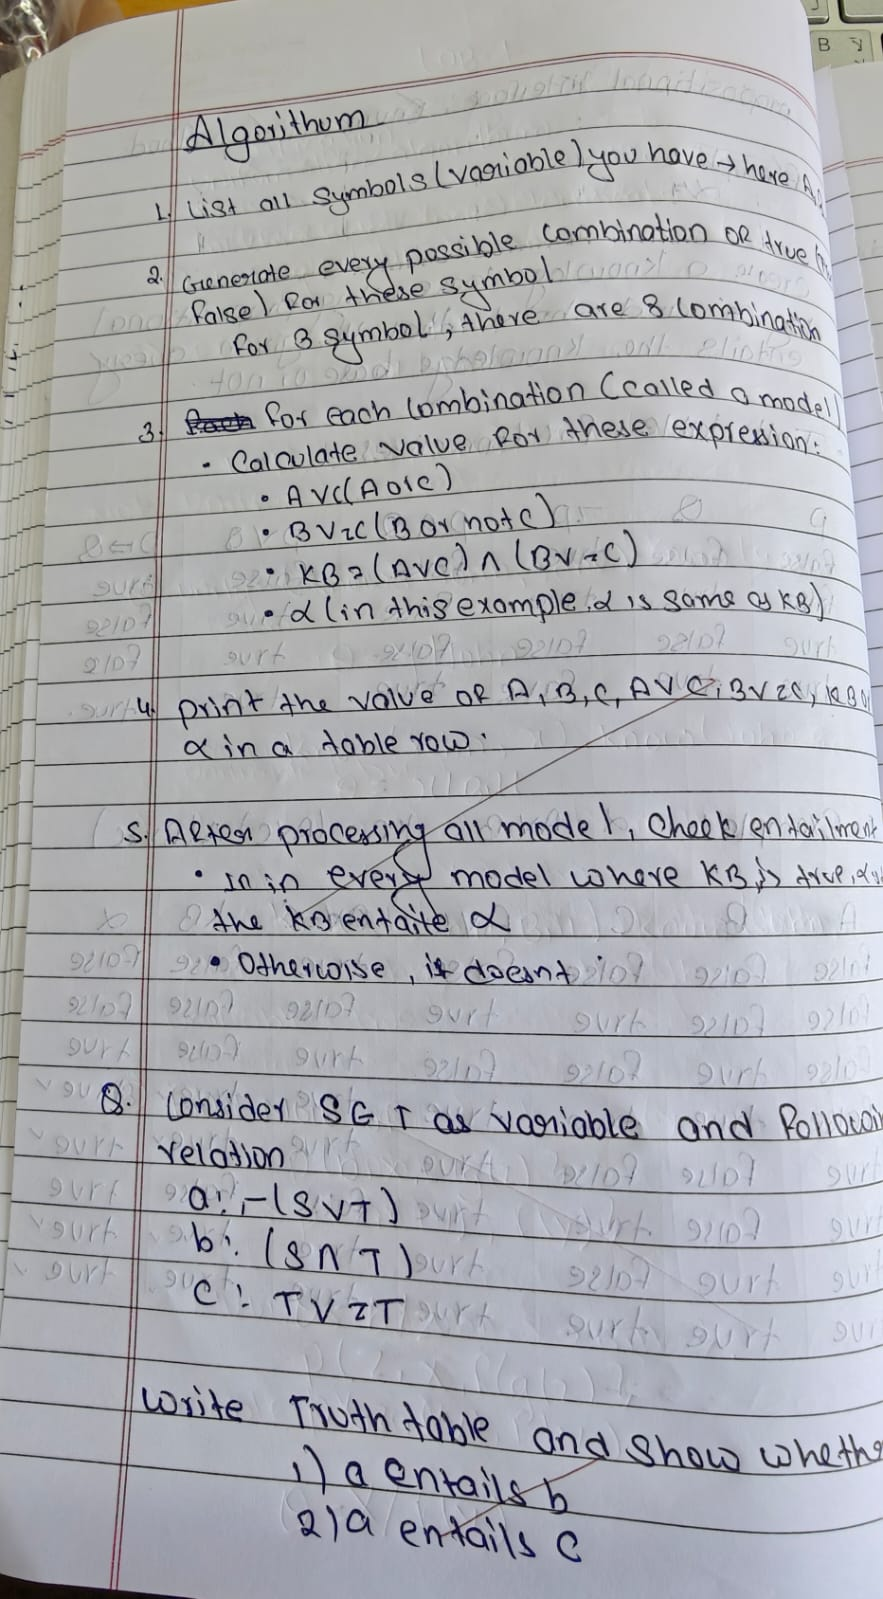 Algorithum
1. List all symbols (variable) you have → here A,
2. Generate every possible combination OR true
false) for these symbol
for 3 symbol, there are 8 combination
3. for each combination (called a model)
• Calculate value for these expression:
• AVC (A or C)
• BV¬C (B or not C)
• KB = (AVC) ∧ (BV¬C)
• α (in this example, α is same as KB)
4. print the value of A, B, C, AVC, BV¬C, KB
α in a table row.
5. After processing all model, check entailment
• In in every model where KB is true, α
the KB entaile α
• Otherwise, it doesnt
Q. Consider S & T as variable and Followi
relation
a: ¬(SVT)
b: (S∧T)
C: TV¬T
write Truth table and show wheth
1) a entails b
2) a entails C
B